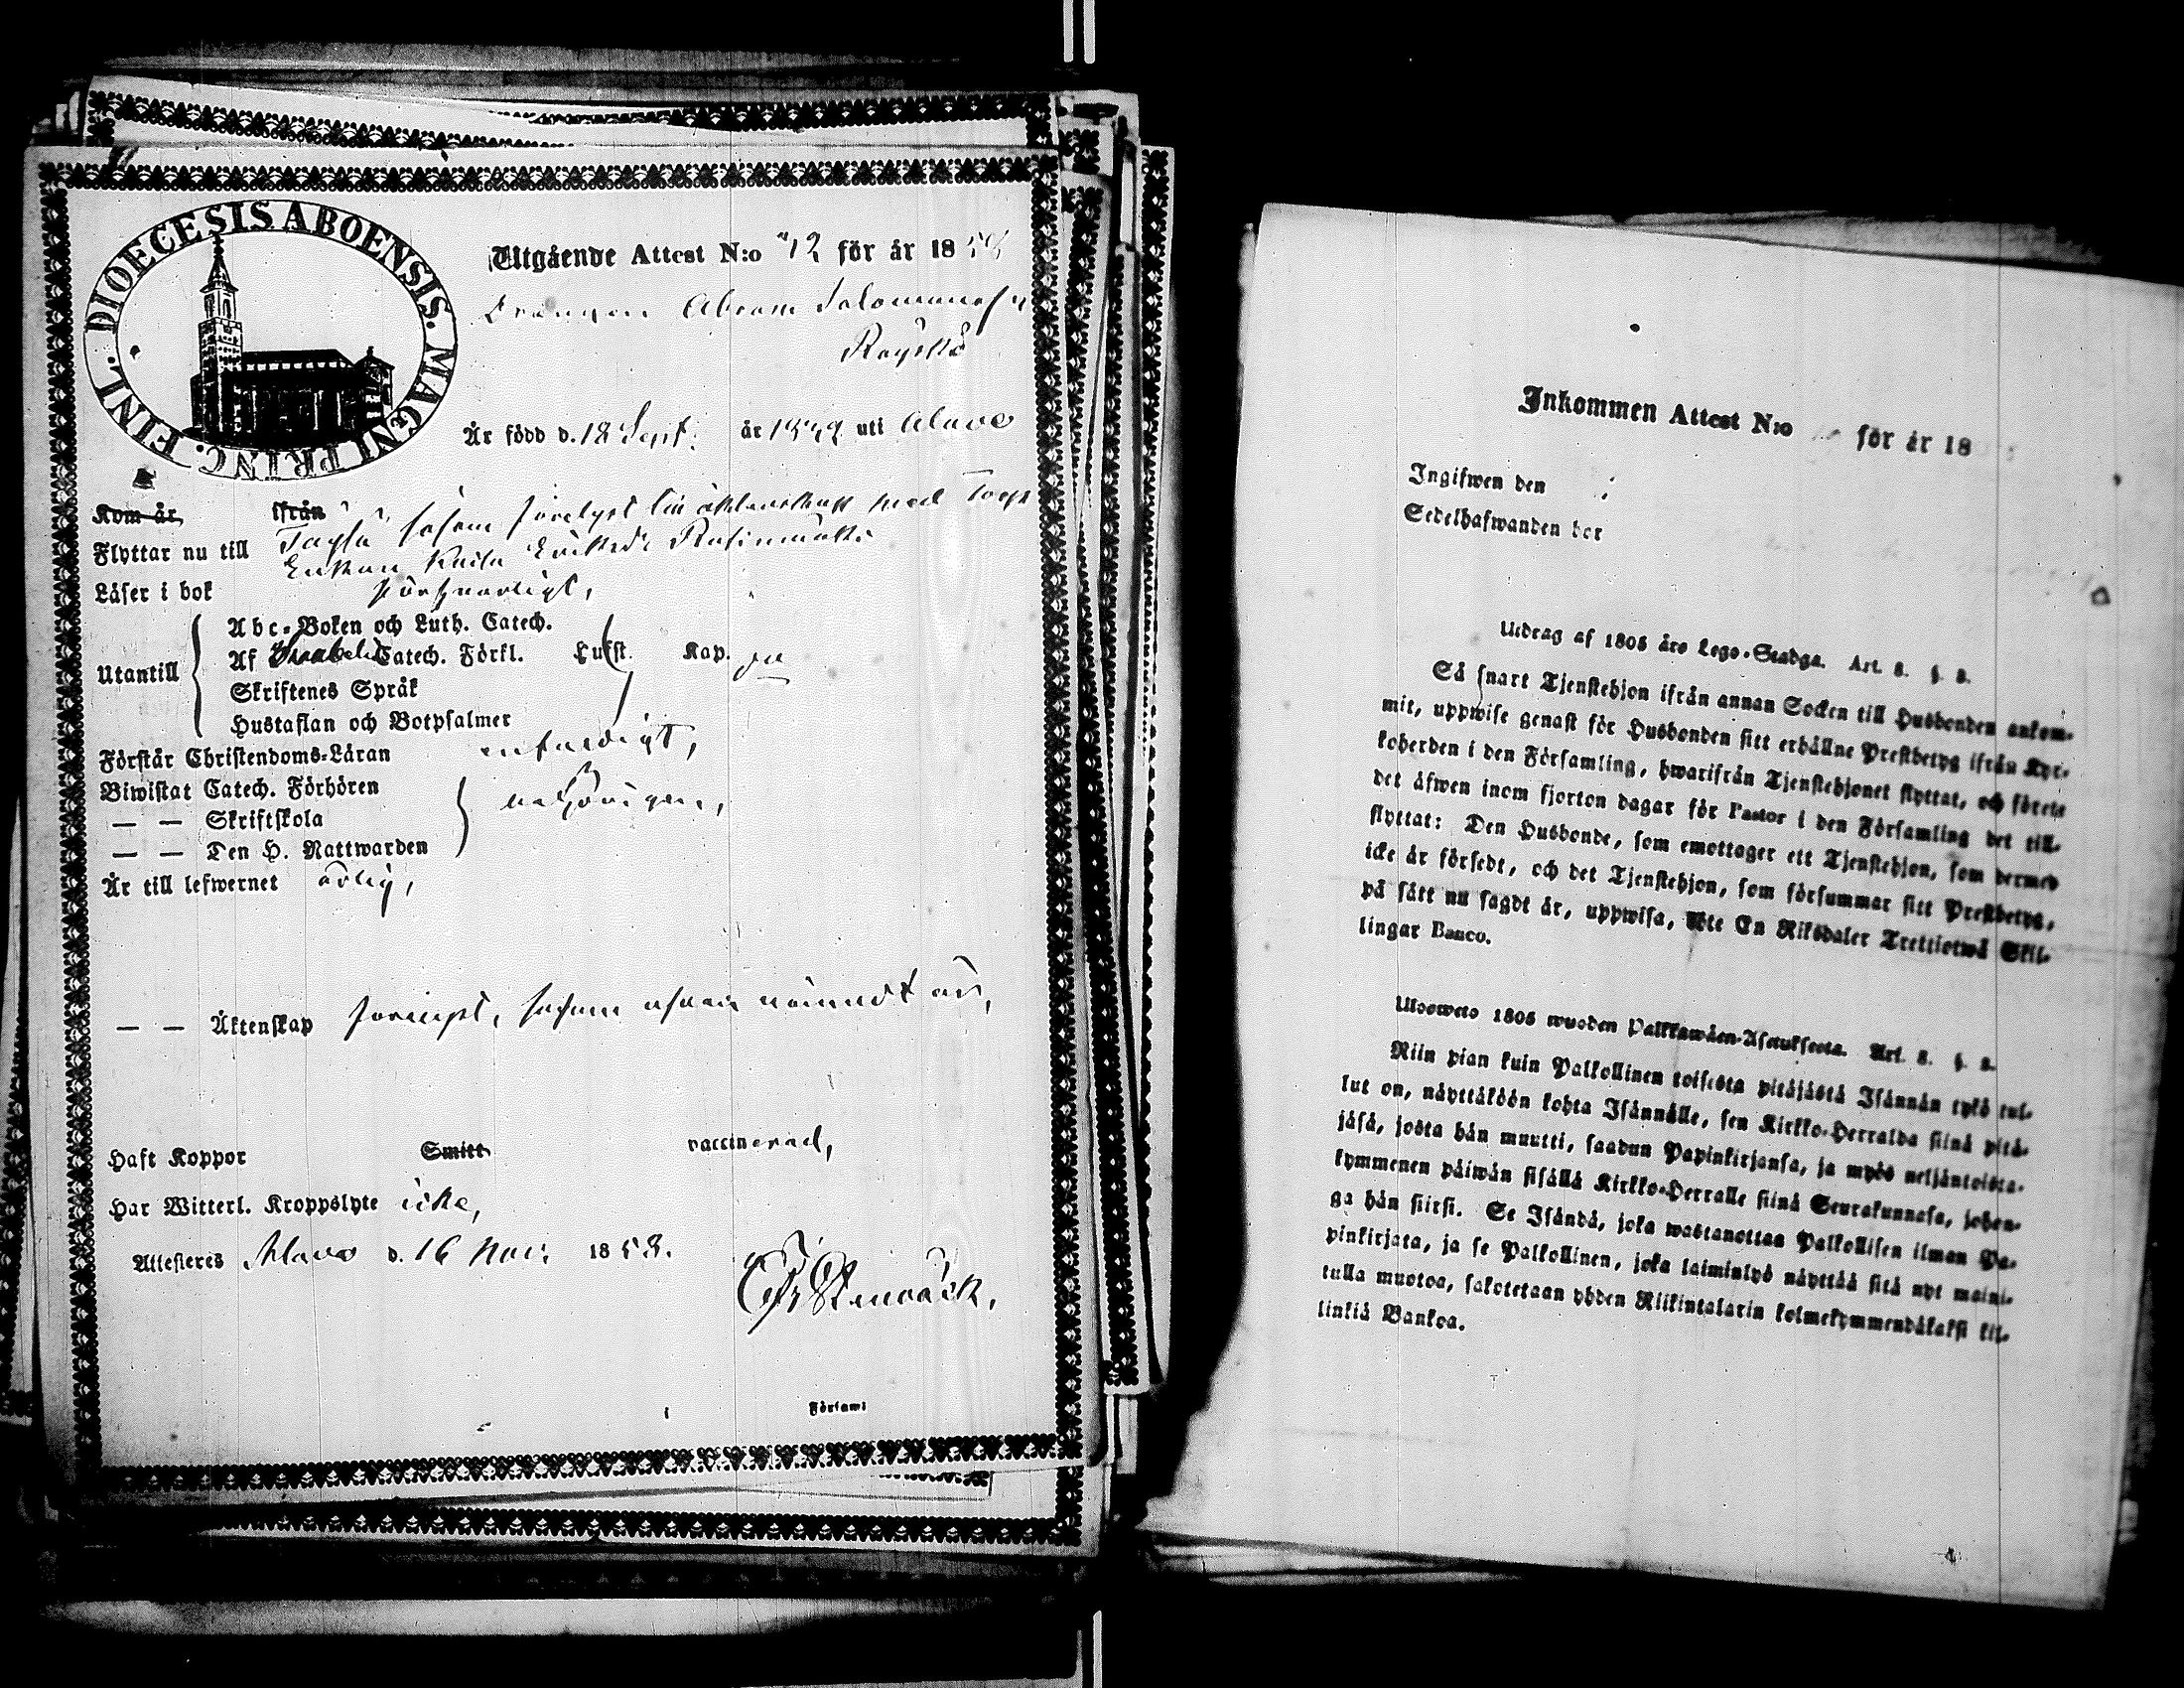 DIOECESIS ABOENSIS. MAGNI PRINC. FINL.
Utgående Attest N:o 72 för år 1858
Drängen Abram Salomonss:n
Räyskö
Är född d. 18 Sept. år 1829 uti Alavo
Kom år ifrån
Flyttar nu till Töysä såsom förelyst till äktenskap med Torp
Enkan Kaisa Eriksd:r
Läser i bok försvarligt,
Utantill
Abc-Boken och Luth. Catech.
Af Svebelii Catech. Förkl. Lukst. Kap.
Skriftenes Språk
Hustaflan och Botpsalmer
Förstår Christendoms-Läran enfaldigt,
Biwistat Catech. Förhören
— — Skriftskola behörigen,
— — Den H. Nattwarden
Är till lefwernet ärlig,
— — Äktenskap förelyst, såsom ofvan nämndt är,
Haft Koppor Smitt vaccinerad,
Har Witterl. Kroppslyte icke,
Attesteras Alavo d. 16 Nov: 1858.
Stenbäck,
Församl
Inkommen Attest N:o för år 18
Ingifwen den
Sedelhafwanden bor
Utdrag af 1805 års Lego-Stadga. Art. 8. §. 8.
Så snart Tjenstehjon ifrån annan Socken till Husbonden ankom-
mit, uppwise genast för Husbonden sitt erhållne Prestbetyg ifrån Kyr-
koherden i den Församling, hwarifrån Tjenstehjonet flyttat, och förete
det äfwen inom fjorton dagar för Pastor i den Församling det till-
flyttat: Den Husbonde, som emottager ett Tjenstehjon, som dermed
icke är försedt, och det Tjenstehjon, som försummar sitt Prestbetyg,
på sätt nu sagdt är, uppwisa, böte En Riksdaler Trettiotwå Skil-
lingar Banco.
Uloswето 1805 wuoden Palkkawäen-Asetuksesta. Art. 8. §. 8.
Niin pian kuin Palkollinen toisesta pitäjästä Isännän tykö tul-
lut on, näyttäköön kohta Isännälle, sen Kirkko-Herralda siinä pitä-
jäsä, josta hän muutti, saadun Papinkirjansa, ja myös neljäntoista-
kymmenen päiwän sisällä Kirkko-Herralle siinä Seurakunnasa, johon-
ga hän siirsi. Se Isändä, joka wastanottaa Palkollisen ilman Pa-
pinkirjata, ja se Palkollinen, joka laiminlyö näyttää sitä nyt maini-
tulla muotoa, sakotetaan yhden Riikintalarin kolmekymmendäkaksi kil-
linkiä Bankoa.